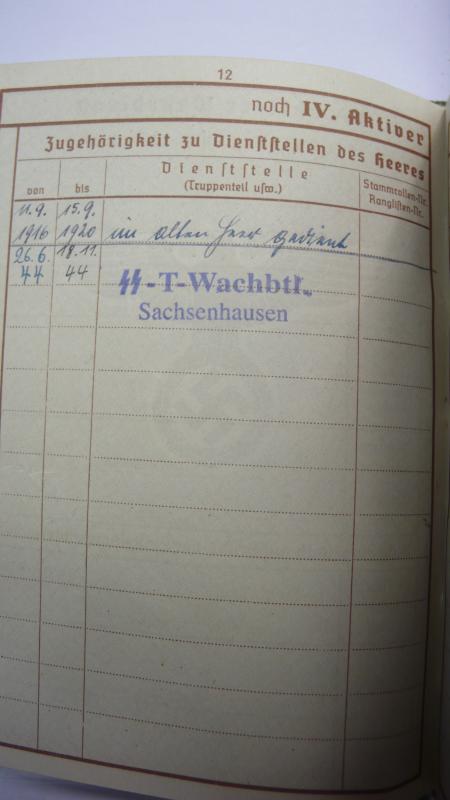 12
noch IV. Aktiver
Zugehörigkeit zu Dienststellen des Heeres
von
bis
Dienststelle
(Truppenteil usw.)
Stammrollen-Nr.
Ranglisten-Nr.
11.9. 15.9.
1916 1920 im alten Heer gedient
26.6. 18.11.
44 44
SS-T-Wachbtl.
Sachsenhausen